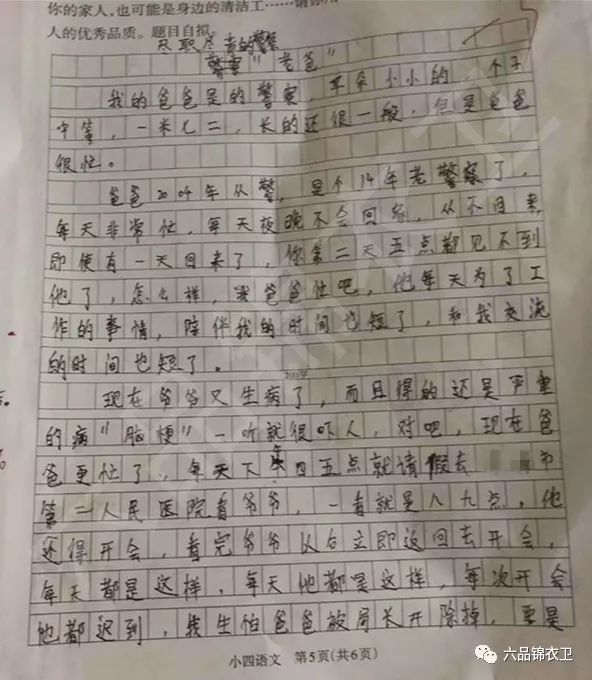 你的家人,也可能是身边的清洁工……请你用
人的优秀品质。题目自拟。
尽职尽责的警察
警察"老爸"
我的爸爸是的警察,耳朵小小的,个子
中等,一米七二,长的还很一般,但是爸爸
很忙。
爸爸2004年从警,是个14年老警察了,
每天非常忙,每天夜晚不会回家,从不回来,
即使有一天回来了,你第二天五点都见不到
他了,怎么样,我爸爸忙吧,他每天为了工
作的事情,陪伴我的时间也短了,和我交流
的时间也短了。
现在爷爷又生病了,而且得的还是严重
的病"脑梗"一听就很吓人,对吧,现在爸
爸更忙了,每天下午四五点就请假去 市
第二人民医院看爷爷,一看就是八九点,他
还得开会,看完爷爷以后立即返回去开会,
每天都是这样,每天他都是这样,每次开会
他都迟到,我生怕爸爸被局长开除掉,要是
小四语文 第5页(共6页)
六品锦衣卫